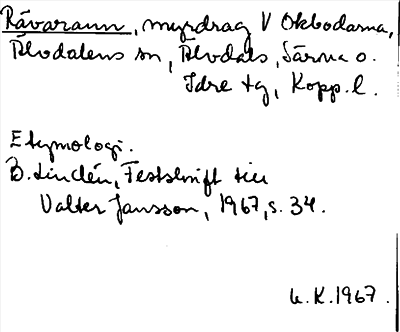 Råvarann, myrdrag V Okbodarna,
Älvdalens sn, Älvdals, Särna o.
Idre tg, Kopp. l.
Etymologi.
B. Lindén, Festskrift till
Valter Jansson, 1967, s. 34.
K. 1967.